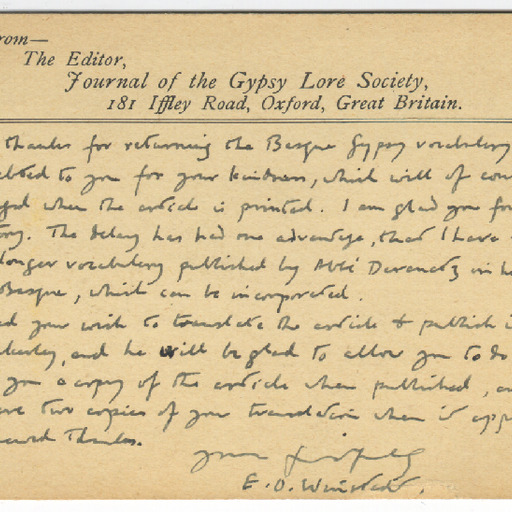 rom—
The Editor,
Journal of the Gypsy Lore Society,
181 Iffley Road, Oxford, Great Britain.
thanks for returning the Basque Gypsy vocabulary
ebted to you for your kindness, which will of cou
ged when the article is printed. I am glad you fo
ong. The delay has had one advantage, that I have
longer vocabulary published by Abbé in h
Basque, which can be incorporated.
ed your wish to translate the article & publish i
, and he will be glad to allow you to do
you a copy of the article when published, an
ave two copies of your translation when it app
Thanks.
Yours
E. O. Winstedt.